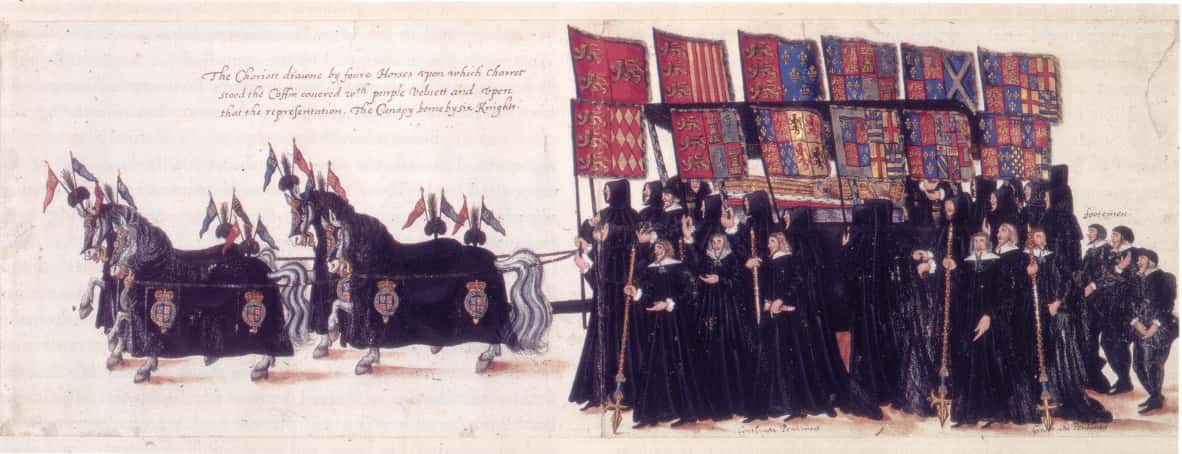 The Chariott drawne by foure Horses vpon which Charret
stood the Coffin couered wth purple Veluett and vpon
that the representation. The Canapy borne by six Knights.
footemen